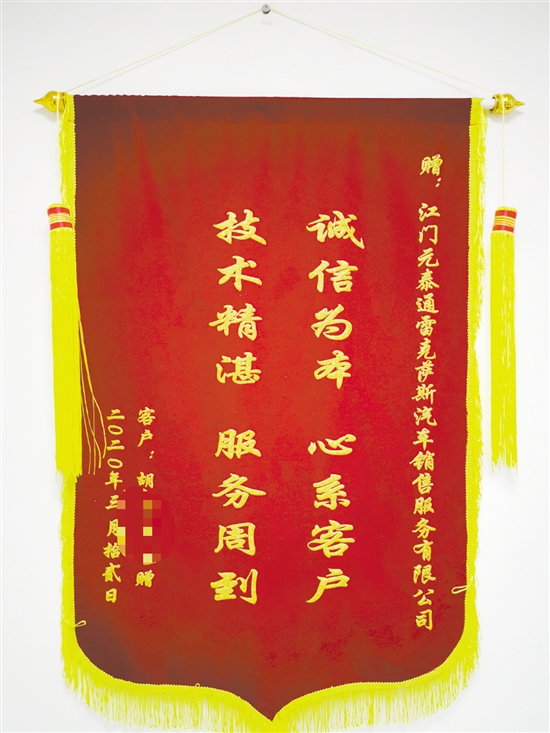 赠：江门元泰通雷克萨斯汽车销售服务有限公司
诚信为本 心系客户
技术精湛 服务周到
客户：胡 赠
二〇二〇年三月拾贰日